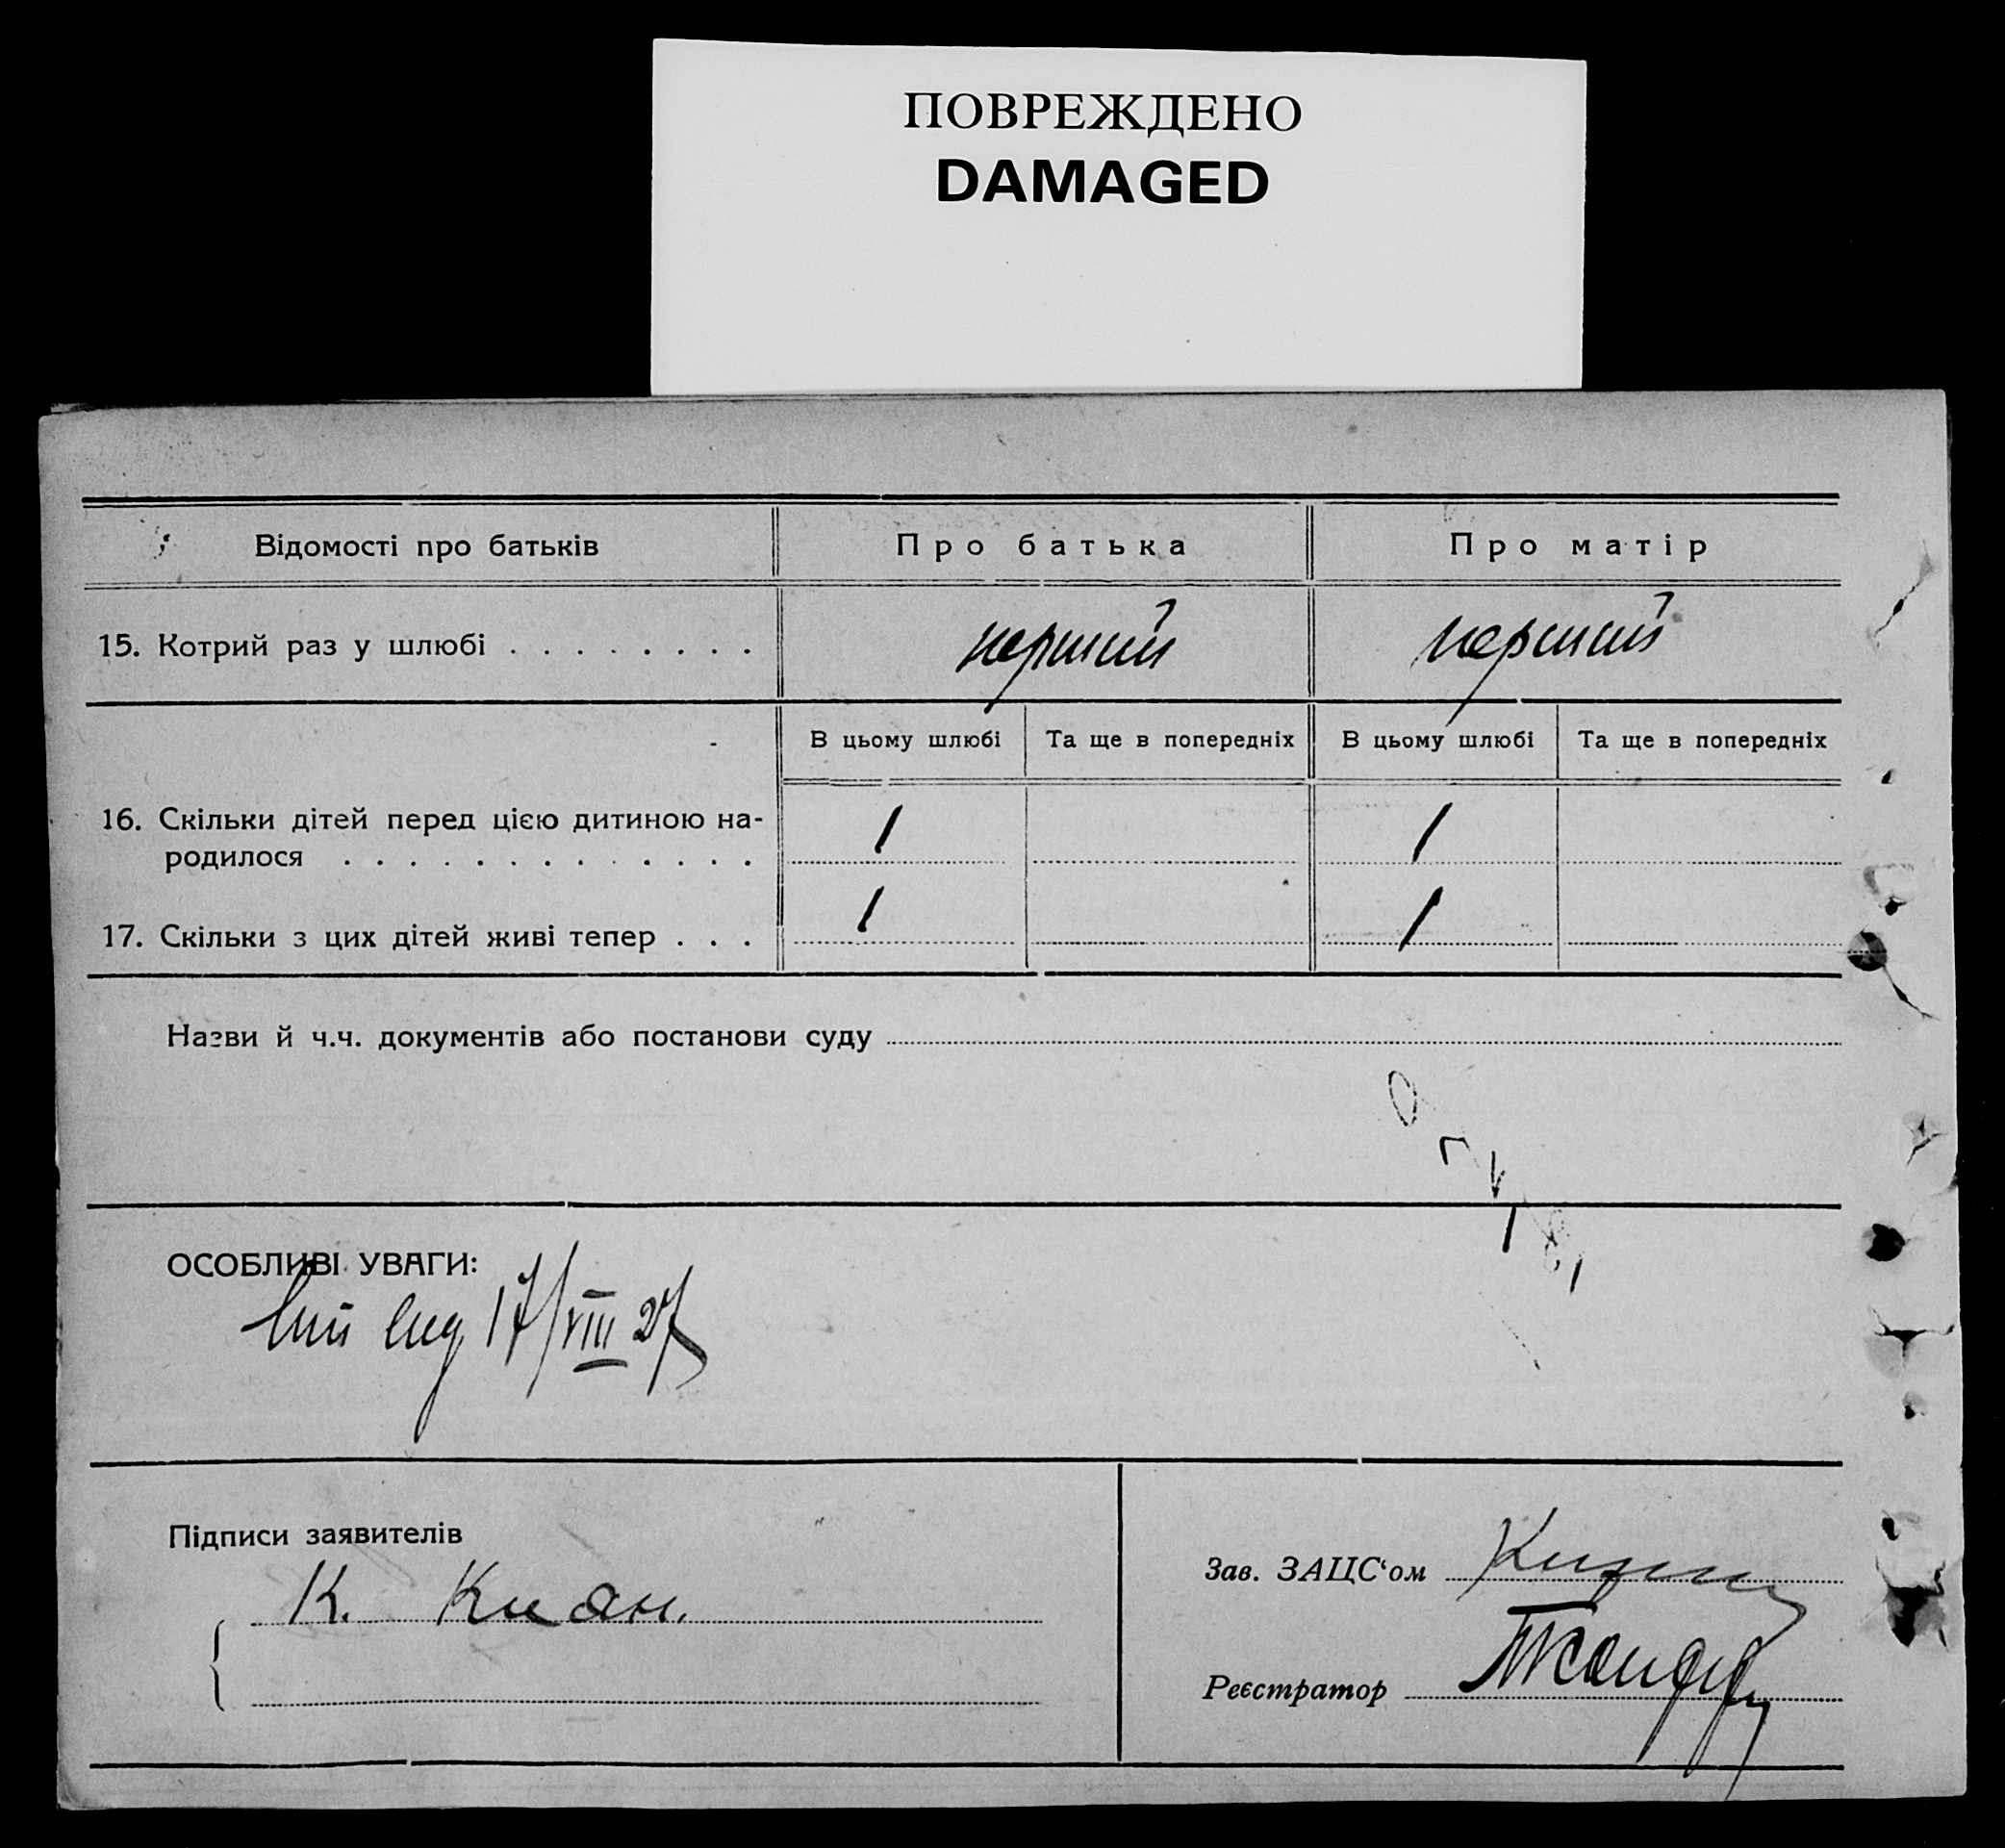 ПОВРЕЖДЕНО
DAMAGED
Відомості про батьків Про батька Про матір
15. Котрий раз у шлюбі . . . . . . . . перший перший
В цьому шлюбі Та ще в попередніх В цьому шлюбі Та ще в попередніх
16. Скільки дітей перед цією дитиною на-
родилося . . . . . . . . . . . . . 1 1
17. Скільки з цих дітей живі тепер . . . 1 1
Назви й ч.ч. документів або постанови суду
ОСОБЛИВІ УВАГИ:
17/VIII 27
Підписи заявителів
К.
Зав. ЗАЦС‘ом
Реєстратор